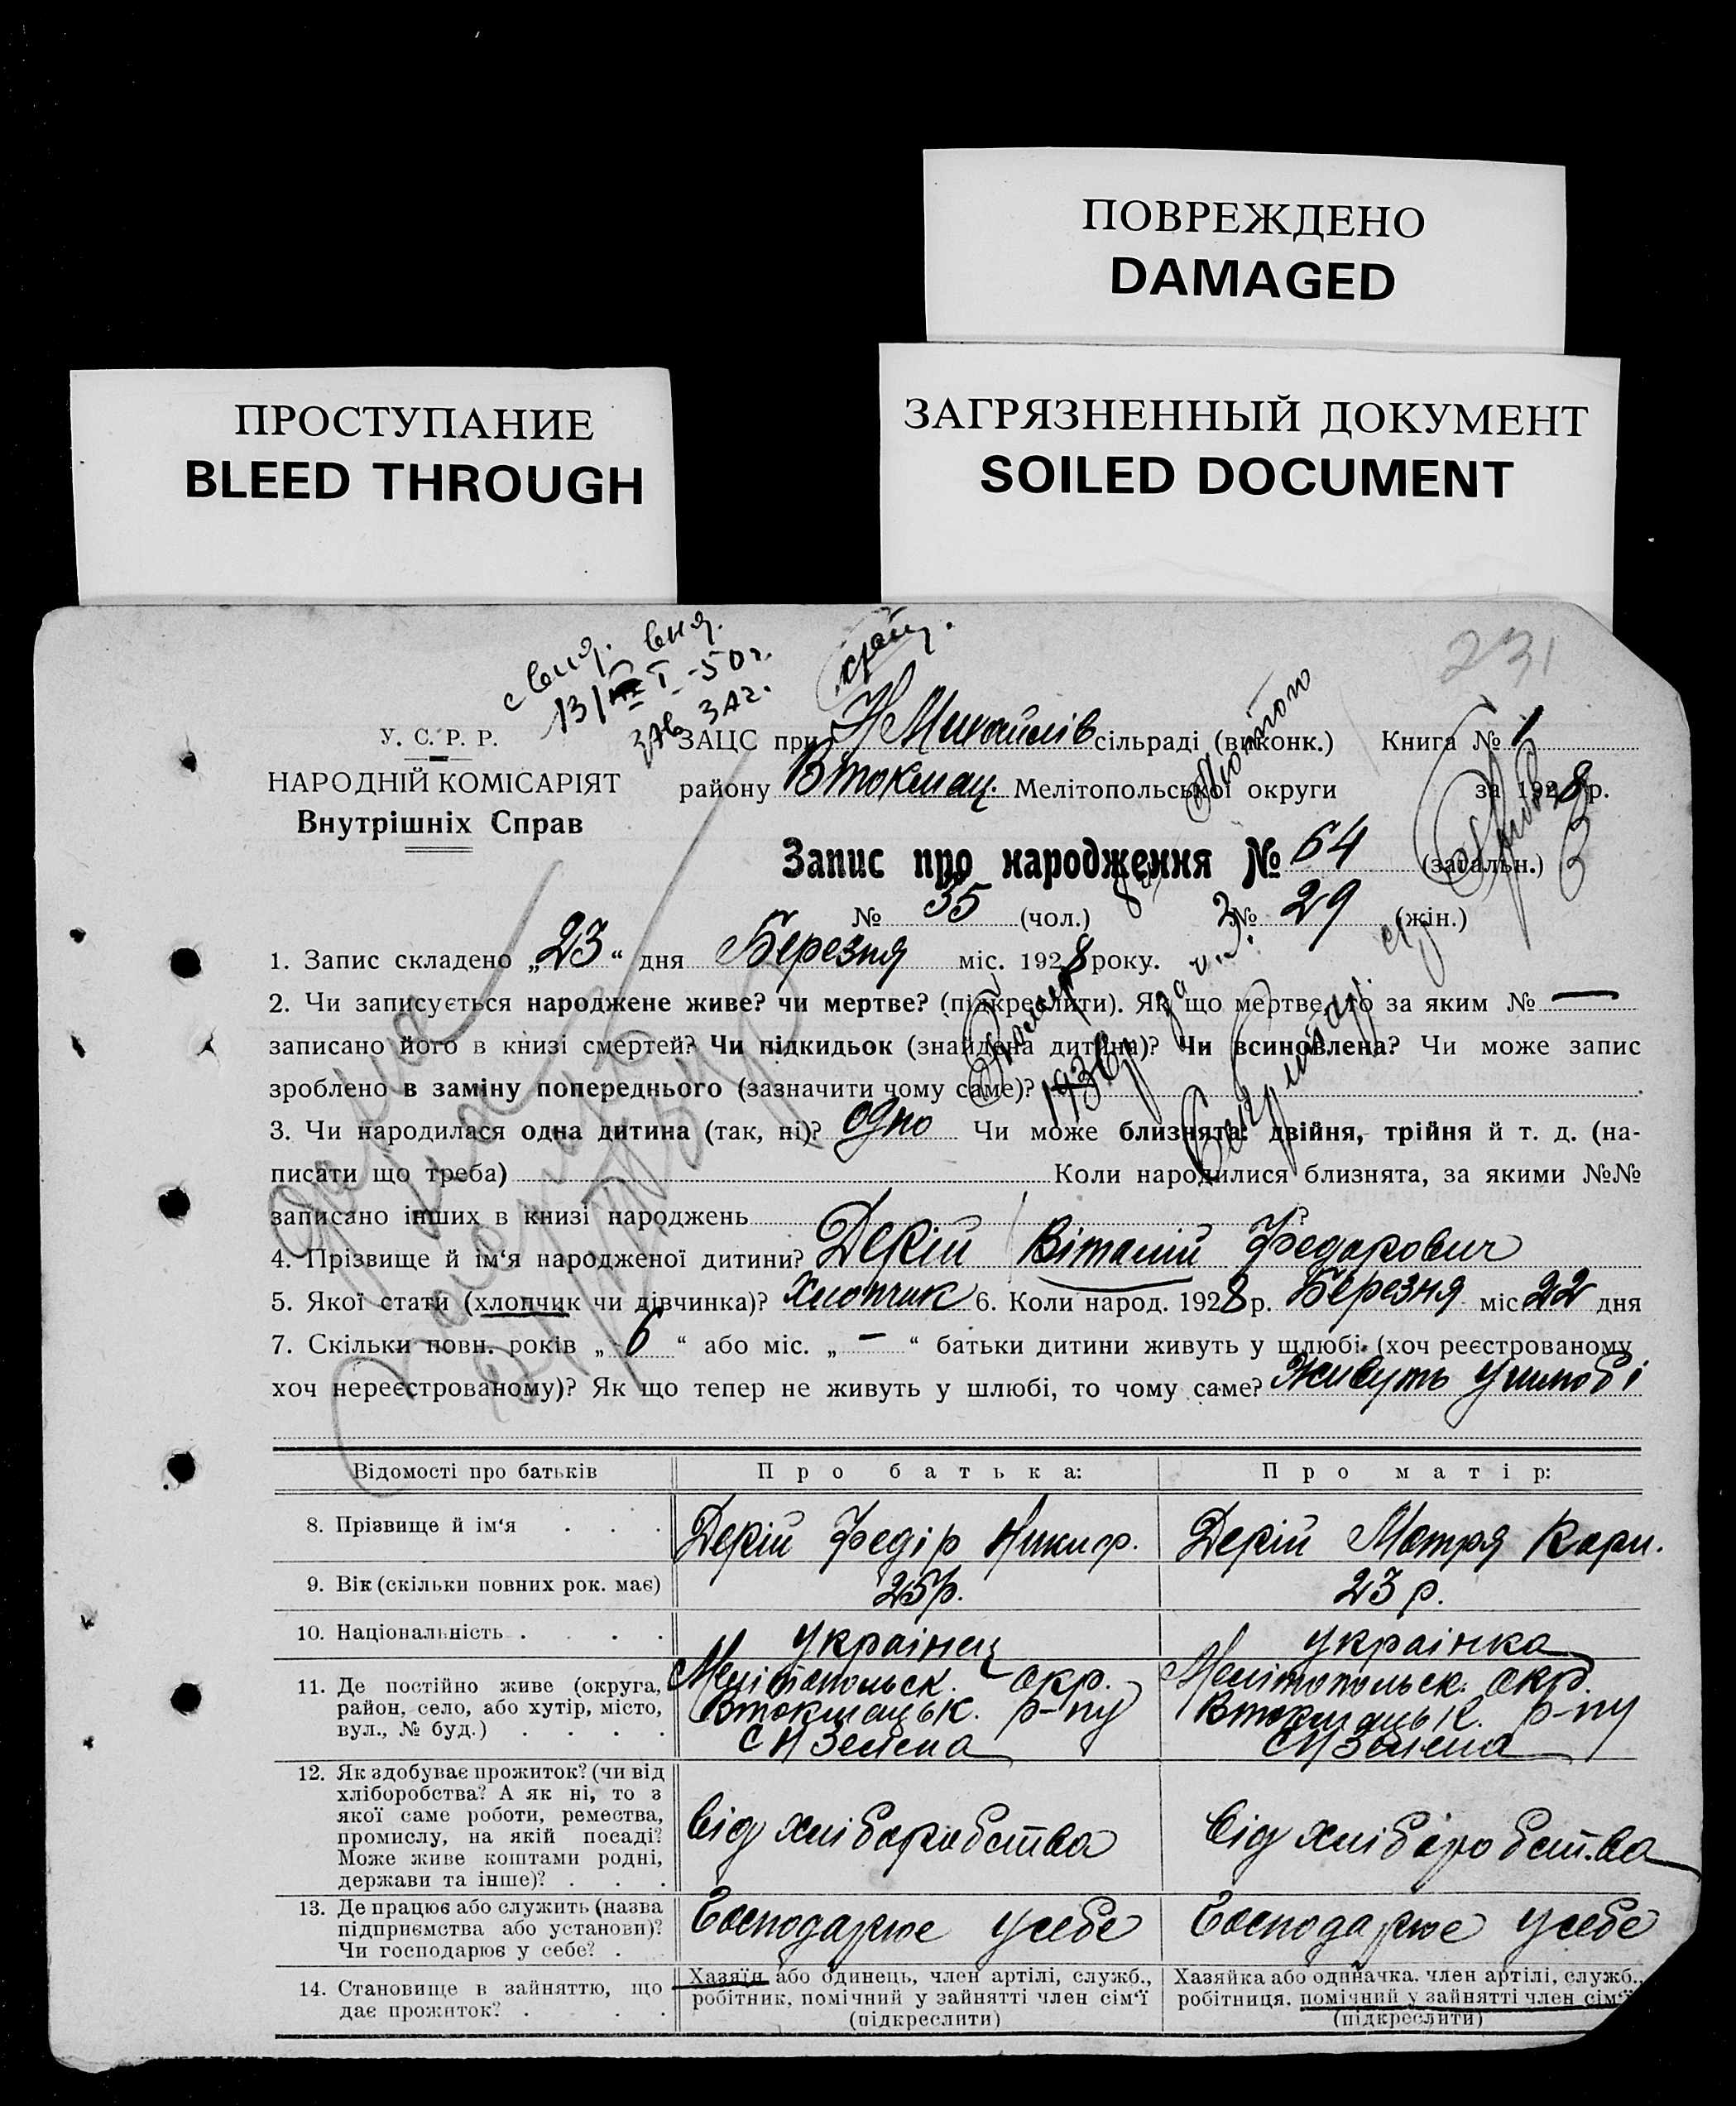 ПОВРЕЖДЕНО
DAMAGED
ПРОСТУПАНИЕ
BLEED THROUGH
ЗАГРЯЗНЕННЫЙ ДОКУМЕНТ
SOILED DOCUMENT
231
У. С. Р. Р.
НАРОДНІЙ КОМІСАРІЯТ
Внутрішніх Справ
ЗАЦС при Н Михайлів сільраді (виконк.) Книга № 1
району Втокмац. Мелітопольської округи за 1928 р.
Запис про народження № 64 (загальн.)
№ 35 (чол.) № 29 (жін.)
1. Запис складено „23“ дня Березня міс. 1928 року.
2. Чи записується народжене живе? чи мертве? (підкреслити). Як що мертве, то за яким № —
записано його в книзі смертей? Чи підкидьок (знайдена дитина)? Чи всиновлена? Чи може запис
зроблено в заміну попереднього (зазначити чому саме)?
3. Чи народилася одна дитина (так, ні)? одно Чи може близнята: двійня, трійня й т. д. (на-
писати що треба) Коли народилися близнята, за якими №№
записано інших в книзі народжень ?
4. Прізвище й ім‘я народженої дитини? Дерій Віталій Федорович
5. Якої стати (хлопчик чи дівчинка)? Хлопчик 6. Коли народ. 1928 р. Березня міс. 22 дня
7. Скільки повн. років „6“ або міс. „—“ батьки дитини живуть у шлюбі (хоч реєстрованому
хоч нереєстрованому)? Як що тепер не живуть у шлюбі, то чому саме? Живуть у шлюбі
Відомості про батьків П р о б а т ь к а: П р о м а т і р:
8. Прізвище й ім‘я . . . Дерій Федір Никиф. Дерій Мотря Карп.
9. Вік (скільки повних рок. має) 25 р. 23 р.
10. Національність . . . . Українец Українка
11. Де постійно живе (округа, район, село, або хутір, місто, вул., № буд.) . . . .
Мелітопольск. окр. Втокмацьк. р-ну с Н Зелена
Мелітопольск. окр. Втокмацьк. р-ну с Н Зелена
12. Як здобуває прожиток? (чи від хліборобства? А як ні, то з якої саме роботи, ремества, промислу, на якій посаді? Може живе коштами родні, держави та інше)? . . .
від хліборобства
від хліборобства
13. Де працює або служить (назва підприємства або установи)? Чи господарює у себе? .
Господарює у себе
Господарює у себе
14. Становище в зайняттю, що дає прожиток? . . .
Хазяїн або одинець, член артілі, служб., робітник, помічний у зайнятті член сім‘ї (підкреслити)
Хазяйка або одиначка, член артілі, служб., робітниця, помічний у зайнятті член сім‘ї (підкреслити)